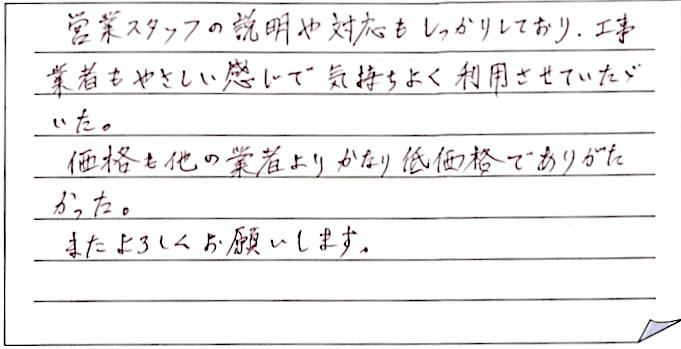 営業スタッフの説明や対応もしっかりしており、工事
業者もやさしい感じで気持ちよく利用させていただ
いた。
価格も他の業者よりかなり低価格でありがた
かった。
またよろしくお願いします。